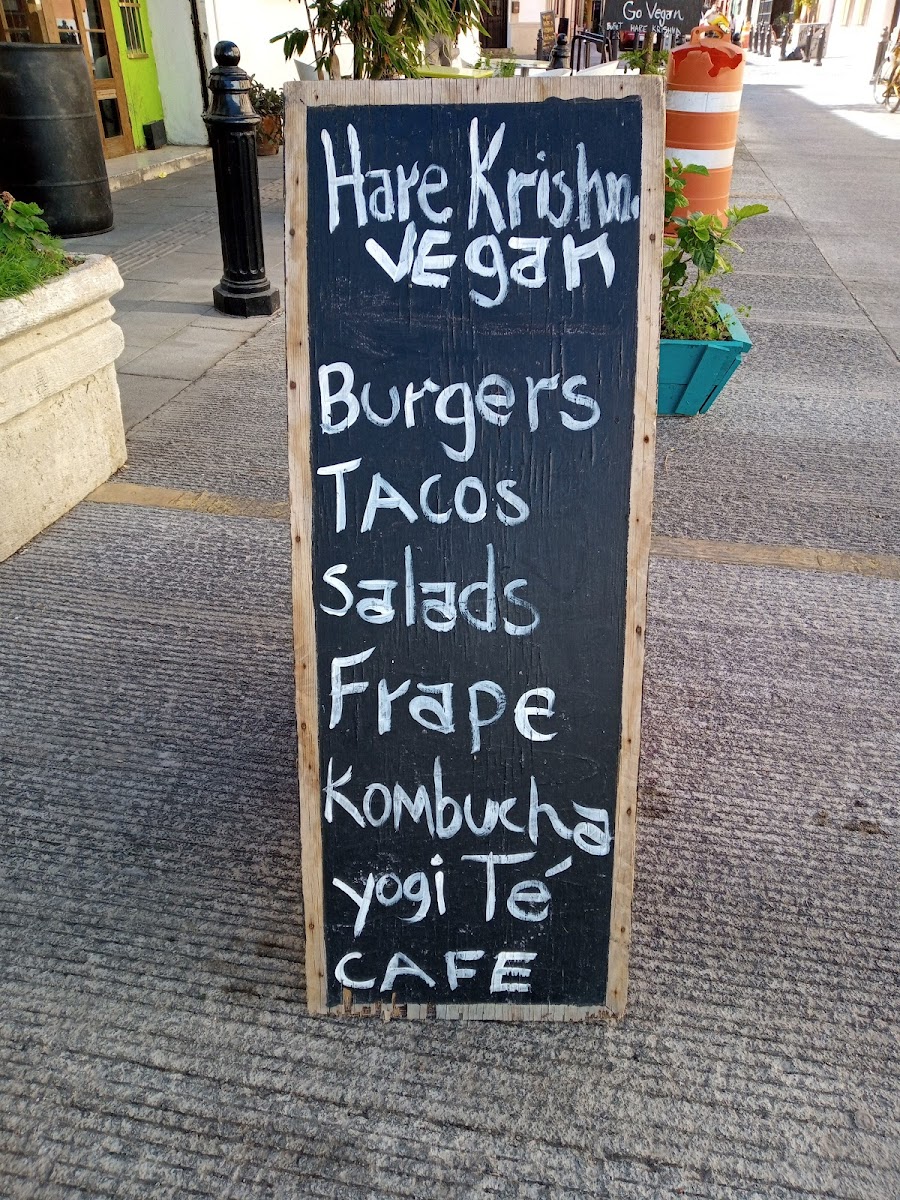 Go Vegan
HARE KRISHNA
Hare Krishna
vegan
Burgers
TACOS
Salads
Frape
Kombucha
yogi Té
CAFE